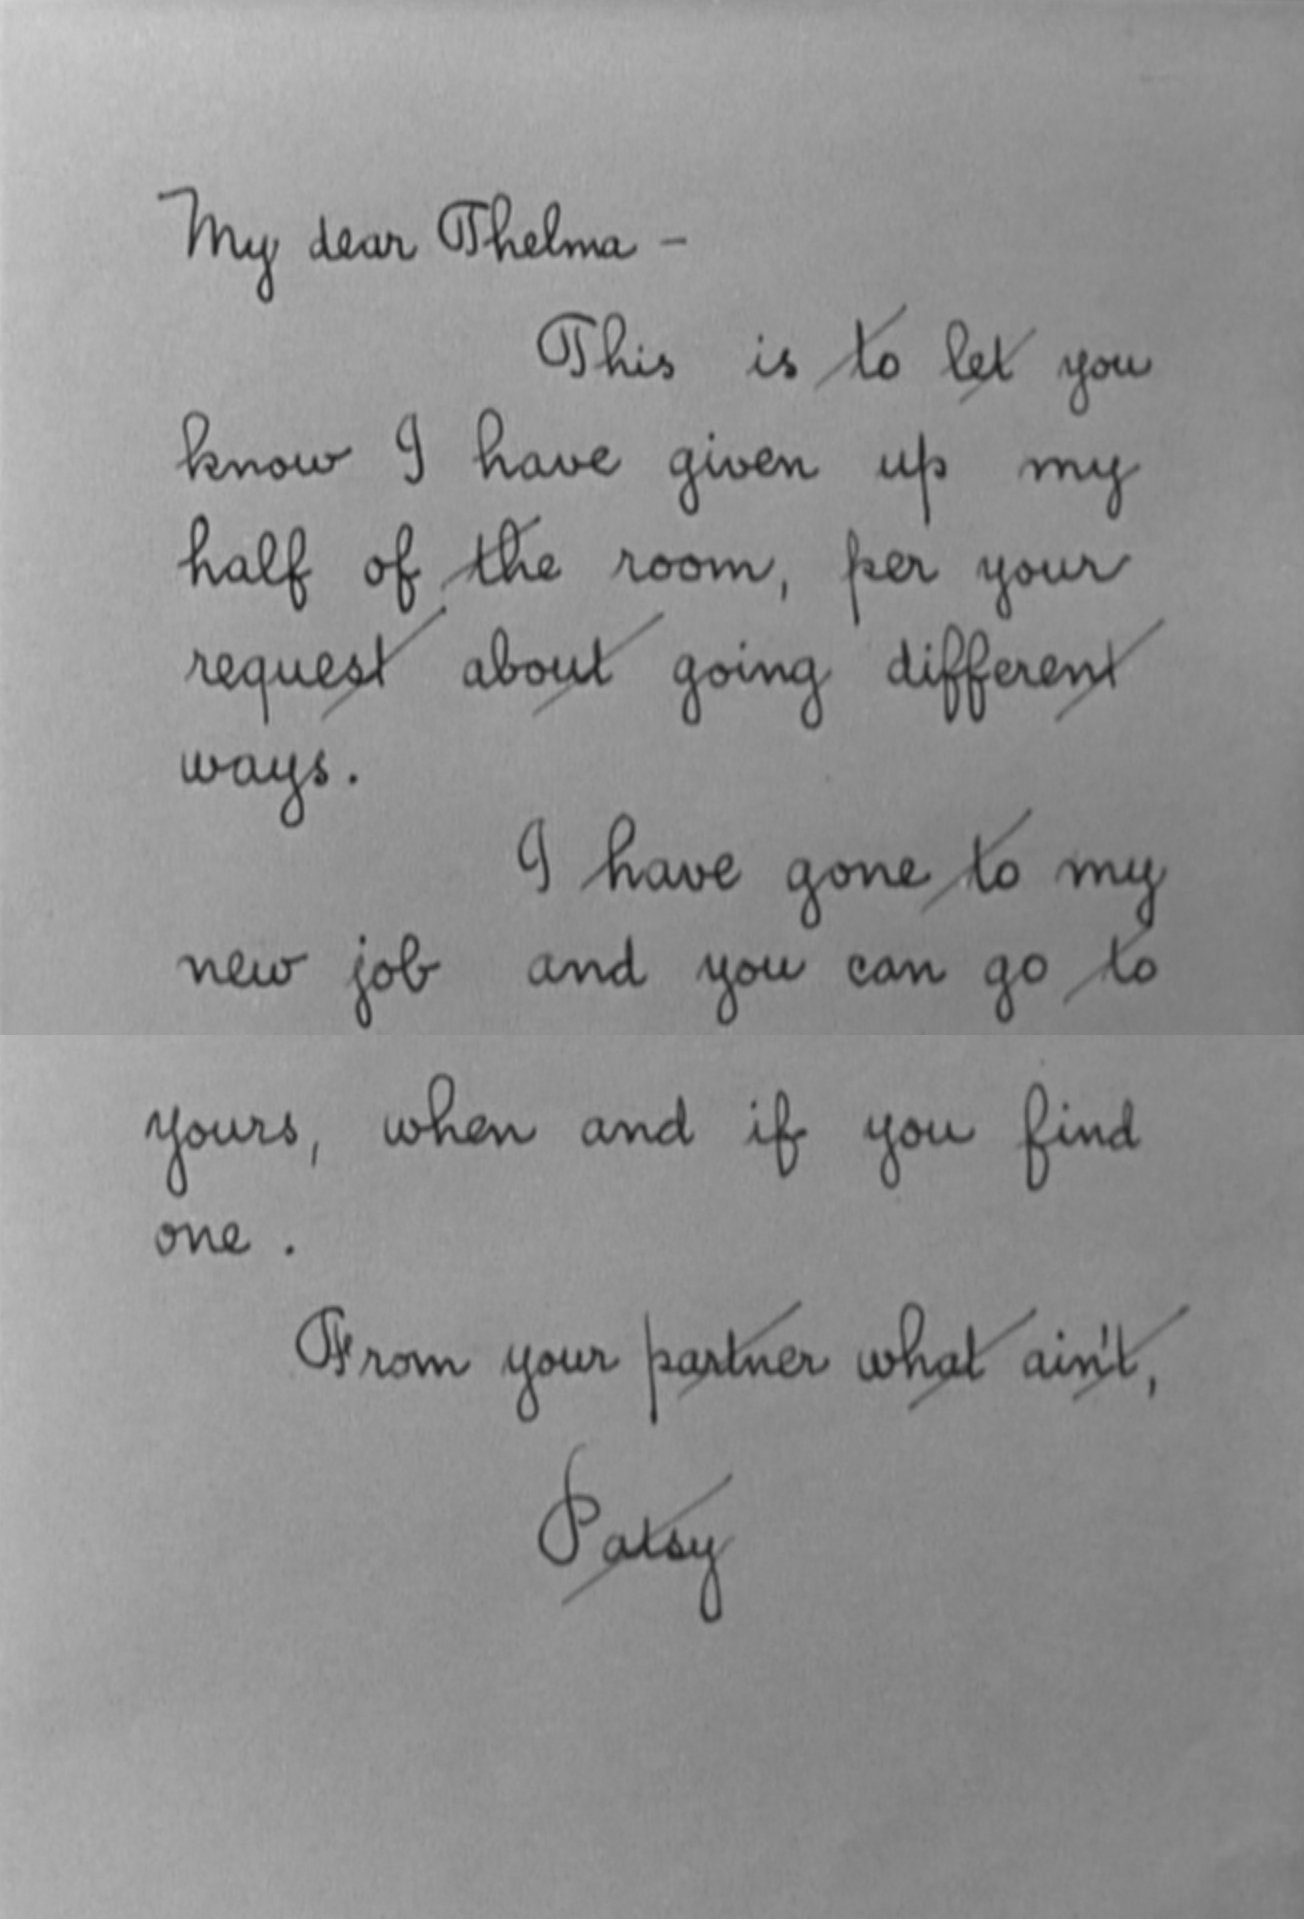 My dear Thelma –
This is to let you
know I have given up my
half of the room, per your
request about going different
ways.
I have gone to my
new job and you can go to
yours, when and if you find
one.
From your partner what ain't,
Patsy